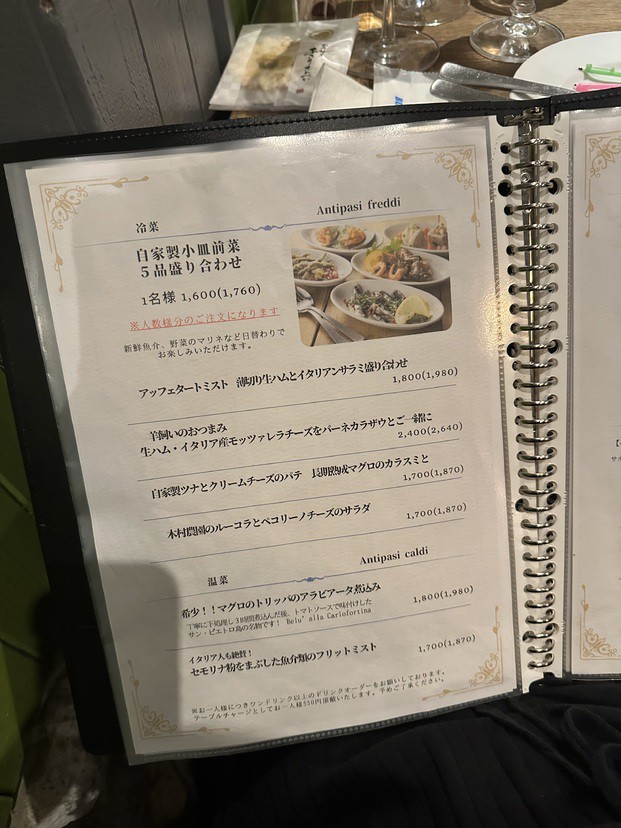 冷菜
Antipasi freddi
自家製小皿前菜
5品盛り合わせ
1名様 1,600(1,760)
※人数様分のご注文になります
新鮮魚介、野菜のマリネなど日替わりで
お楽しみいただけます。
アッフェタートミスト 薄切り生ハムとイタリアンサラミ盛り合わせ
1,800(1,980)
羊飼いのおつまみ
生ハム・イタリア産モッツァレラチーズをパーネカラザウとご一緒に
2,400(2,640)
自家製ツナとクリームチーズのパテ 長期熟成マグロのカラスミと
1,700(1,870)
木村農園のルーコラとペコリーノチーズのサラダ
1,700(1,870)
温菜
Antipasi caldi
希少!!マグロのトリッパのアラビアータ煮込み
1,800(1,980)
丁寧に下処理し3時間煮込んだ後、トマトソースで味付けした
サン・ピエトロ島の名物です! Belu'alla Carlofortina
イタリア人も絶賛!
セモリナ粉をまぶした魚介類のフリットミスト
1,700(1,870)
※お一人様につきワンドリンク以上のドリンクオーダーをお願いしております。
テーブルチャージとしてお一人様550円頂戴いたします。予めご了承ください。